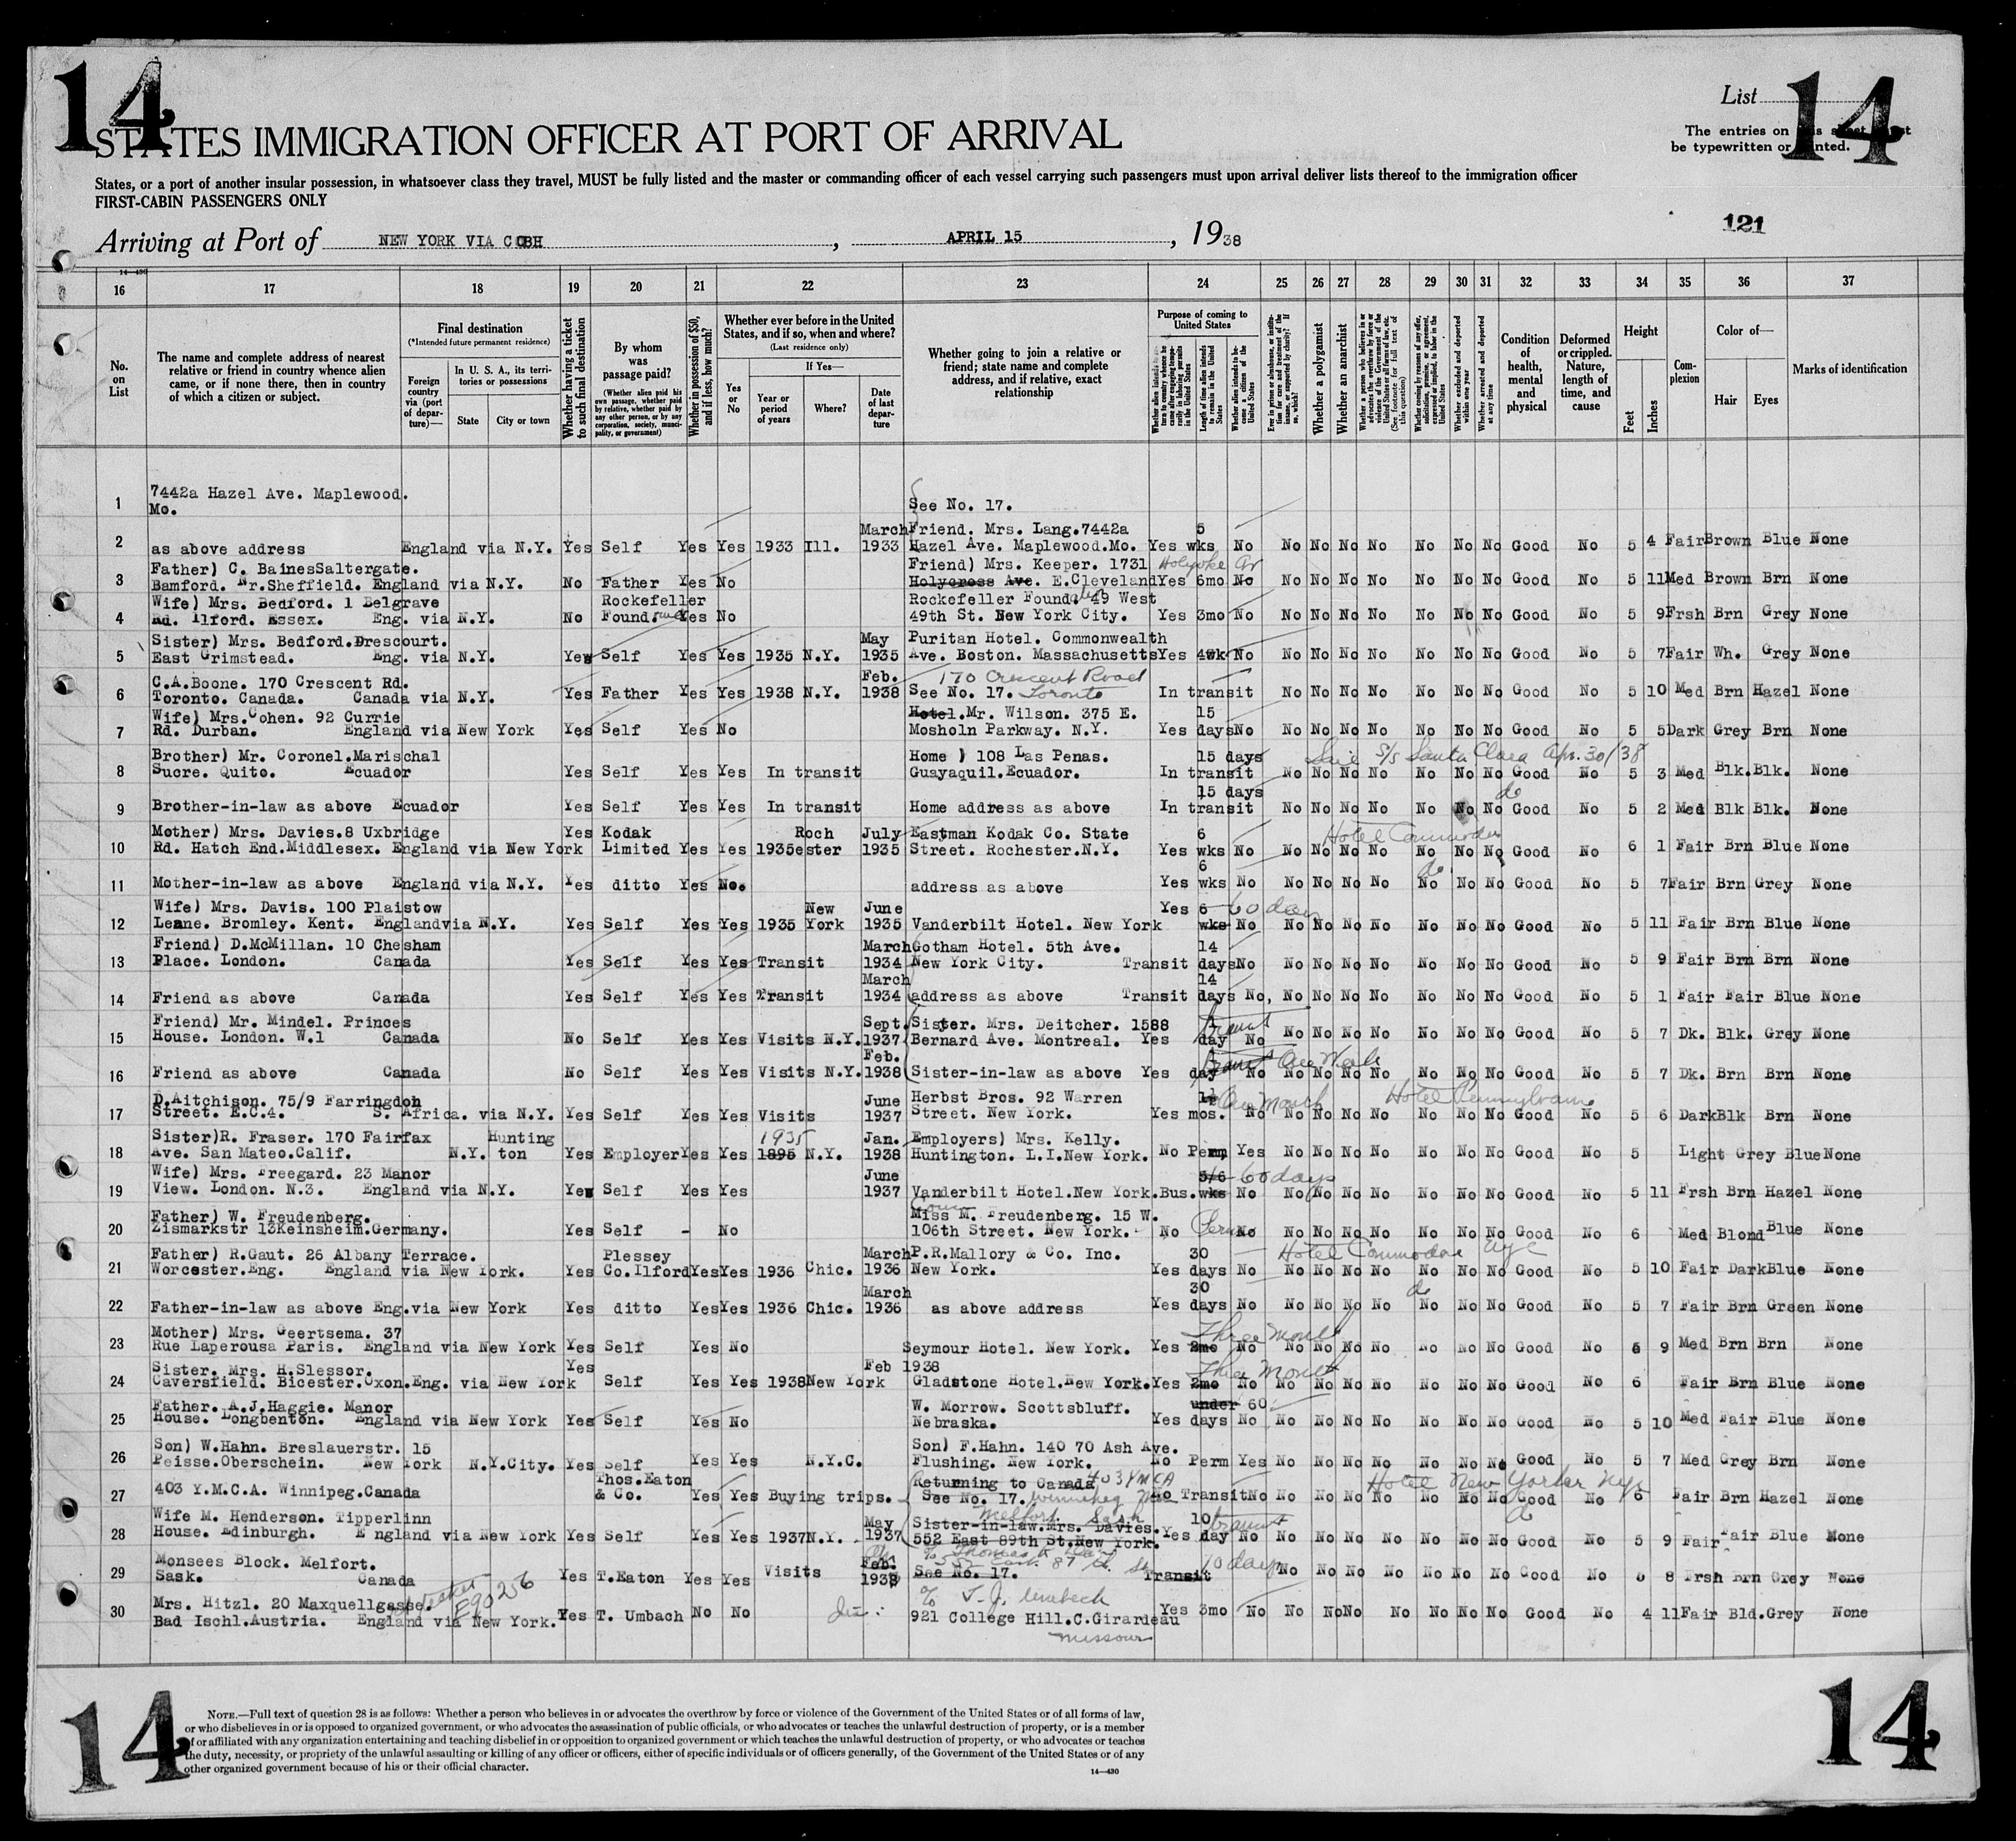 14
14
List
STATES IMMIGRATION OFFICER AT PORT OF ARRIVAL
The entries on this sheet must
be typewritten or printed.
States, or a port of another insular possession, in whatsoever class they travel, MUST be fully listed and the master or commanding officer of each vessel carrying such passengers must upon arrival deliver lists thereof to the immigration officer
FIRST-CABIN PASSENGERS ONLY
121
Arriving at Port of NEW YORK VIA COBH, APRIL 15, 1938
14-430
16 17 18 19 20 21 22 23 24 25 26 27 28 29 30 31 32 33 34 35 36 37
No. on List
The name and complete address of nearest relative or friend in country whence alien came, or if none there, then in country of which a citizen or subject.
Final destination
(*Intended future permanent residence)
Foreign country via (port of departure)—
In U. S. A., its territories or possessions
State
City or town
Whether having a ticket to such final destination
By whom was passage paid?
(Whether alien paid his own passage, whether paid by relative, whether paid by any other person, or by any corporation, society, municipality, or government)
Whether in possession of $50, and if less, how much?
Whether ever before in the United States, and if so, when and where?
(Last residence only)
Yes or No
If Yes—
Year or period of years
Where?
Date of last departure
Whether going to join a relative or friend; state name and complete address, and if relative, exact relationship
Purpose of coming to United States
Length of time alien intends to remain in the United States
Whether alien intends to become a citizen of the United States
Whether a polygamist
Whether an anarchist
(See footnote for full text of this question)
Whether excluded and deported within one year
Whether arrested and deported at any time
Condition of health, mental and physical
Deformed or crippled. Nature, length of time, and cause
Height
Feet
Inches
Complexion
Color of—
Hair
Eyes
Marks of identification
1 7442a Hazel Ave. Maplewood. Mo. See No. 17.
2 as above address England via N.Y. Yes Self Yes Yes 1933 Ill. March 1933 Friend. Mrs. Lang.7442a Hazel Ave. Maplewood.Mo. Yes 5 wks No No No No No No No No Good No 5 4 Fair Brown Blue None
3 Father) C. BainesSaltergate. Bamford. Nr.Sheffield. England via N.Y. No Father Yes No Friend) Mrs. Keeper. 1731 Holycross Ave. Holyoke Av E.Cleveland Yes 6mo No No No No No No No No Good No 5 11 Med Brown Brn None
4 Wife) Mrs. Bedford. 1 Belgrave Rd. Ilford. Essex. Eng. via N.Y. No Rockefeller Found. Yes No Rockefeller Found. 49 West 49th St. New York City. Yes 3mo No No No No No No No No Good No 5 9 Frsh Brn Grey None
5 Sister) Mrs. Bedford.Drescourt. East Grimstead. Eng. via N.Y. Yes Self Yes Yes 1935 N.Y. May 1935 Puritan Hotel. Commonwealth Ave. Boston. Massachusetts Yes 4wk No No No No No No No No Good No 5 7 Fair Wh. Grey None
6 C.A.Boone. 170 Crescent Rd. Toronto. Canada. Canada via N.Y. Yes Father Yes Yes 1938 N.Y. Feb. 1938 See No. 17. 170 Crescent Road Toronto In transit No No No No No No No Good No 5 10 Med Brn Hazel None
7 Wife) Mrs.Cohen. 92 Currie Rd. Durban. England via New York Yes Self Yes No Hotel.Mr. Wilson. 375 E. Mosholn Parkway. N.Y. Yes 15 days No No No No No No No No Good No 5 5 Dark Grey Brn None
8 Brother) Mr. Coronel.Marischal Sucre. Quito. Ecuador Yes Self Yes Yes In transit Home ) 108 Las Penas. Guayaquil.Ecuador. 15 days In transit S/S Santa Clara Apr. 30/38 No No No No No No No Good No 5 3 Med Blk. Blk. None
9 Brother-in-law as above Ecuador Yes Self Yes Yes In transit Home address as above 15 days In transit do No No No No No No No Good No 5 2 Med Blk Blk. None
10 Mother) Mrs. Davies.8 Uxbridge Rd. Hatch End.Middlesex. England via New York Yes Kodak Limited Yes Yes 1935 Rochester July 1935 Eastman Kodak Co. State Street. Rochester.N.Y. Yes 6 wks No Hotel Commodore No No No No No No No Good No 6 1 Fair Brn Blue None
11 Mother-in-law as above England via N.Y. Yes ditto Yes No. address as above Yes 6 wks No do No No No No No No No Good No 5 7 Fair Brn Grey None
12 Wife) Mrs. Davis. 100 Plaistow Leane. Bromley. Kent. Englandvia N.Y. Yes Self Yes Yes 1935 New York June 1935 Vanderbilt Hotel. New York Yes 6 wks 60 days No No No No No No No No Good No 5 11 Fair Brn Blue None
13 Friend) D.McMillan. 10 Chesham Place. London. Canada Yes Self Yes Yes Transit March 1934 Gotham Hotel. 5th Ave. New York City. Transit 14 days No No No No No No No No Good No 5 9 Fair Brn Brn None
14 Friend as above Canada Yes Self Yes Yes Transit March 1934 address as above Transit 14 days No, No No No No No No No Good No 5 1 Fair Fair Blue None
15 Friend) Mr. Mindel. Princes House. London. W.1 Canada No Self Yes Yes Visits N.Y. Sept. 1937 Sister. Mrs. Deitcher. 1588 Bernard Ave. Montreal. Yes day transit No No No No No No No No Good No 5 7 Dk. Blk. Grey None
16 Friend as above Canada No Self Yes Yes Visits N.Y. Feb. 1938 Sister-in-law as above Yes day transit One Week No No No No No No No No Good No 5 7 Dk. Brn Brn None
17 D.Aitchison. 75/9 Farringdon Street. E.C.4. S. Africa. via N.Y. Yes Self Yes Yes Visits June 1937 Herbst Bros. 92 Warren Street. New York. Yes 1½ mos. One Month Hotel Pennsylvania No No No No No No No No Good No 5 6 Dark Blk Brn None
18 Sister)R. Fraser. 170 Fairfax Ave. San Mateo.Calif. N.Y. Huntington Yes Employer Yes Yes 1895 1935 N.Y. Jan. 1938 Employers) Mrs. Kelly. Huntington. L.I.New York. No Perm Yes No No No No No No No Good No 5 Light Grey Blue None
19 Wife) Mrs. Freegard. 23 Manor View. London. N.3. England via N.Y. Yes Self Yes Yes June 1937 Vanderbilt Hotel.New York. Bus. 5/6 wks 60 days No No No No No No No No Good No 5 11 Frsh Brn Hazel None
20 Father) W. Freudenberg. Zismarkstr 13Keinsheim.Germany. Yes Self - No Miss M. Freudenberg. 15 W. 106th Street. New York. No Perm No No No No No No No No Good No 6 Med Blond Blue None
21 Father) R.Gaut. 26 Albany Terrace. Worcester.Eng. England via New York. Yes Plessey Co.Ilford Yes Yes 1936 Chic. March 1936 P.R.Mallory & Co. Inc. New York. Yes 30 days No Hotel Commodore NYC No No No No No No No Good No 5 10 Fair Dark Blue None
22 Father-in-law as above Eng.via New York Yes ditto Yes Yes 1936 Chic. March 1936 as above address Yes 30 days No do No No No No No No No Good No 5 7 Fair Brn Green None
23 Mother) Mrs. Geertsema. 37 Rue Laperousa Paris. England via New York Yes Self Yes No Seymour Hotel. New York. Yes 2mo Three Months No No No No No No No No Good No 6 9 Med Brn Brn None
24 Sister. Mrs. H.Slessor. Caversfield. Bicester.Oxon.Eng. via New York Yes Self Yes Yes 1938 New York Feb 1938 Gladstone Hotel.New York. Yes 2mo Three Months No No No No No No No No Good No 6 Fair Brn Blue None
25 Father. A.J.Haggie. Manor House. Longbenton. England via New York Yes Self Yes No W. Morrow. Scottsbluff. Nebraska. Yes under 60 days No No No No No No No No Good No 5 10 Med Fair Blue None
26 Son) W.Hahn. Breslauerstr. 15 Peisse.Oberschein. New York N.Y.City. Yes Self Yes Yes N.Y.C. Son) F.Hahn. 140 70 Ash Ave. Flushing. New York. No Perm Yes No No No No No No No Good No 5 7 Med Grey Brn None
27 403 Y.M.C.A. Winnipeg.Canada Thos.Eaton & Co. Yes Yes Buying trips. Returning to Canada 403 YMCA See No. 17. Winnipeg No Transit No Hotel New Yorker NYC No No No No No No No Good No 6 Fair Brn Hazel None
28 Wife M. Henderson. Tipperlinn House. Edinburgh. England via New York Yes Self Yes Yes 1937 N.Y. May 1937 Melfort Sask Sister-in-law.Mrs. Davies. 552 East 89th St.New York. Yes 10 day transit No do No No No No No No No Good No 5 9 Fair Fair Blue None
29 Monsees Block. Melfort. Sask. Canada Yes T.Eaton Yes Yes Visits Feb. 1938 See No. 17. Transit 10 days No No No No No No No Good No 5 8 Frsh Brn Grey None
30 Mrs. Hitzl. 20 Maxquellgasse. Bad Ischl.Austria. England via New York. Yes T. Umbach No No c/o T.J. Umbach 921 College Hill.C.Girardeau Missouri Yes 3mo No No No No No No No No Good No 4 11 Fair Bld. Grey None
14
NOTE.—Full text of question 28 is as follows: Whether a person who believes in or advocates the overthrow by force or violence of the Government of the United States or of all forms of law,
or who disbelieves in or is opposed to organized government, or who advocates the assassination of public officials, or who advocates or teaches the unlawful destruction of property, or is a member
of or affiliated with any organization entertaining and teaching disbelief in or opposition to organized government or which teaches the unlawful destruction of property, or who advocates or teaches
the duty, necessity, or propriety of the unlawful assaulting or killing of any officer or officers, either of specific individuals or of officers generally, of the Government of the United States or of any
other organized government because of his or their official character.
14—430
14